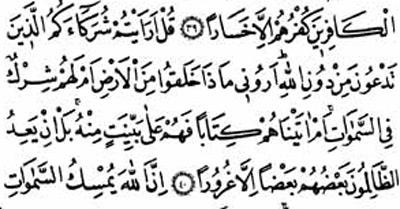 الْكَافِرِينَ كُفْرُهُمْ اِلَّا خَسَارًا ﴿٣٩﴾ قُلْ اَرَاَيْتُمْ شُرَكَٓاءَكُمُ الَّذِينَ
تَدْعُونَ مِنْ دُونِ اللّٰهِ اَرُونِي مَاذَا خَلَقُوا مِنَ الْاَرْضِ اَمْ لَهُمْ شِرْكٌ
فِي السَّمٰوَاتِ اَمْ اٰتَيْنَاهُمْ كِتَابًا فَهُمْ عَلٰى بَيِّنَتٍ مِنْهُ بَلْ اِنْ يَعِدُ
الظَّالِمُونَ بَعْضُهُمْ بَعْضًا اِلَّا غُرُورًا ﴿٤٠﴾ اِنَّ اللّٰهَ يُمْسِكُ السَّمٰوَاتِ